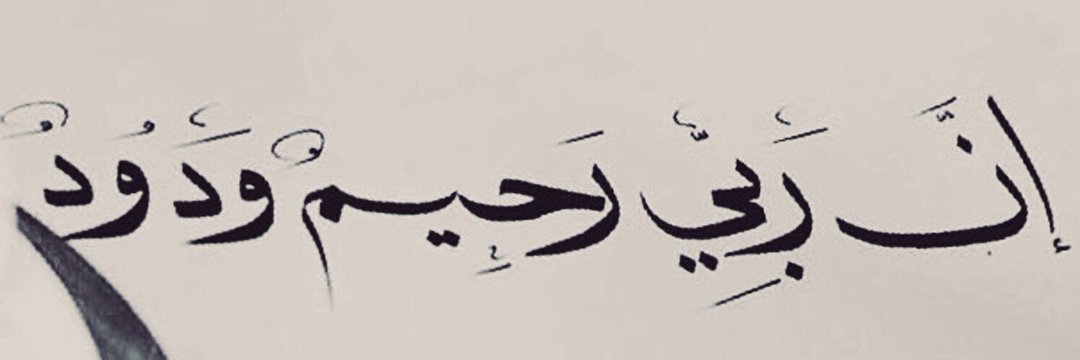 إِنَّ رَبِّيّ رَحِيمٌ وَدَوُدٌ